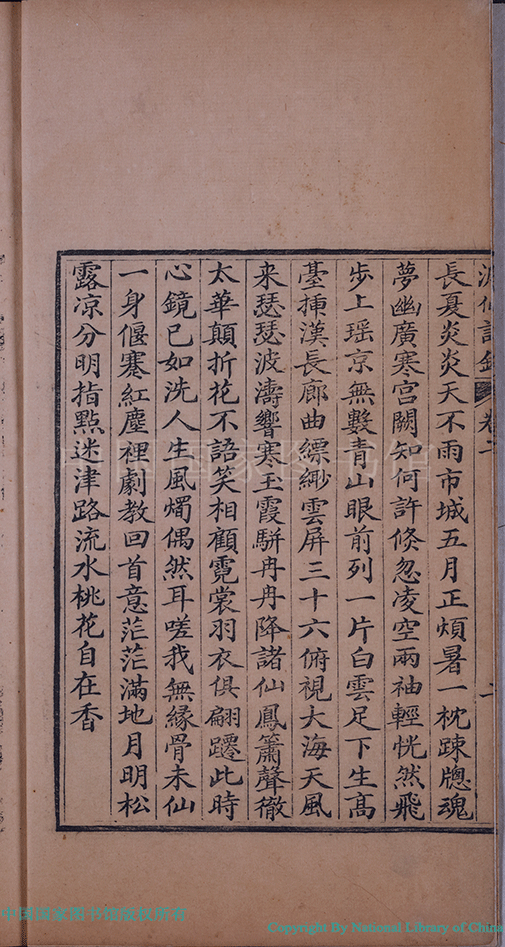 長夏炎炎天不雨市城五月正煩暑一枕踈牕魂
夢幽廣寒宫闕知何許倐忽凌空兩袖輕恍然飛
歩上瑶京無數青山眼前列一片白雲足下生髙
䑓揷漢長廊曲縹緲雲屏三十六俯視大海天風
来瑟瑟波濤響寒玉霞駢冉冉降諸仙鳳簫聲徹
太華顛折花不語笑相顧霓裳羽衣俱翩躚此時
心鏡已如洗人生風燭偶然耳嗟我無縁骨未仙
一身偃蹇紅塵裡劇教回首意茫茫滿地月明松
露凉分明指點迷津路流水桃花自在香
卷二
中国国家图书馆
中国国家图书馆版权所有
Copyright By National Library of China